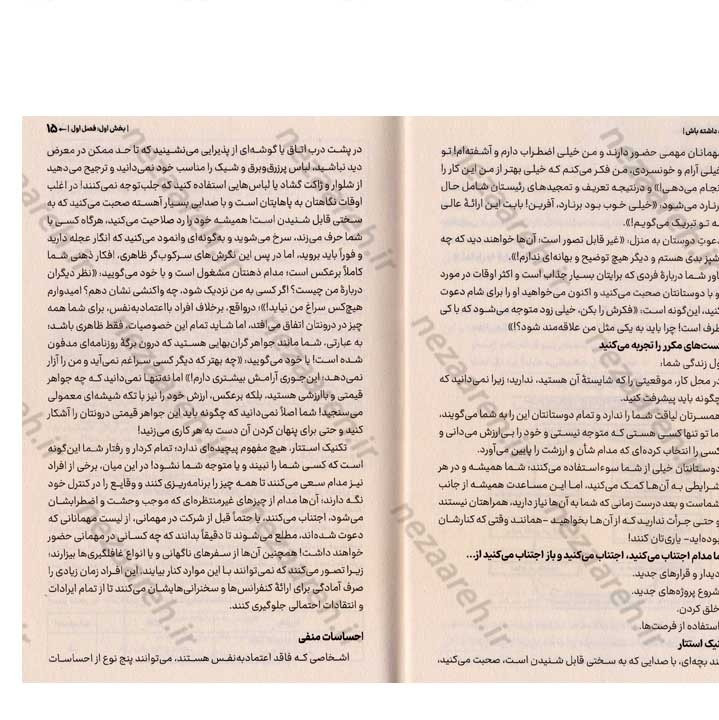 داشته باش |
مهمانان مهمی حضور دارند و من خیلی اضطراب دارم و آشفته‌ام! تو
خیلی آرام و خونسردی، من فکر می‌کنم که خیلی بهتر از من این کار را
انجام می‌دهی!» و درنتیجه تعریف و تمجیدهای رئیستان شامل حال
برنارد می‌شود: «خیلی خوب بود برنارد، آفرین! بابت این ارائهٔ عالی
به تو تبریک می‌گویم!».
دعوت دوستان به منزل: «غیر قابل تصور است؛ آن‌ها خواهند دید که چه
آشپز بدی هستم و دیگر هیچ توضیح و بهانه‌ای ندارم!».
باور شما دربارهٔ فردی که برایتان بسیار جذاب است و اکثر اوقات در مورد
او با دوستانتان صحبت می‌کنید و اکنون می‌خواهید او را برای شام دعوت
کنید، این‌گونه است: «فکرش را بکن، خیلی زود متوجه می‌شود که با کی
طرف است! چرا باید به یکی مثل من علاقه‌مند شود؟!»
شکست‌های مکرر را تجربه می‌کنید
طول زندگی شما،
در محل کار، موقعیتی را که شایستهٔ آن هستید، ندارید؛ زیرا نمی‌دانید که
چگونه باید پیشرفت کنید.
همسرتان لیاقت شما را ندارد و تمام دوستانتان این را به شما می‌گویند،
اما تو تنها کسی هستی که متوجه نیستی و خود را بی‌ارزش می‌دانی و
کسی را انتخاب کرده‌ای که مدام شأن و ارزشت را پایین می‌آورد.
دوستانتان خیلی از شما سوءاستفاده می‌کنند؛ شما همیشه و در هر
شرایطی به آن‌ها کمک می‌کنید، اما این مساعدت همیشه از جانب
شماست و بعد درست زمانی که شما به آن‌ها نیاز دارید، همراهتان نیستند
و حتی جرأت ندارید که از آن‌ها بخواهید -همانند وقتی که کنارشان
بوده‌اید- یاری‌تان کنند!
شما مدام اجتناب می‌کنید، اجتناب می‌کنید و باز اجتناب می‌کنید از...
دیدار و قرارهای جدید.
شروع پروژه‌های جدید.
خلق کردن.
استفاده از فرصت‌ها.
تکنیک استتار
مانند بچه‌ای، با صدایی که به سختی قابل شنیدن است، صحبت می‌کنید،
| بخش اول: فصل اول | ← ۱۵
در پشت درب اتاق یا گوشه‌ای از پذیرایی می‌نشینید که تا حد ممکن در معرض
دید نباشید، لباس پرزرق‌وبرق و شیک را مناسب خود نمی‌دانید و ترجیح می‌دهید
از شلوار و ژاکت گشاد یا لباس‌هایی استفاده کنید که جلب‌توجه نمی‌کنند! در اغلب
اوقات نگاهتان به پاهایتان است و با صدایی بسیار آهسته صحبت می‌کنید که به
سختی قابل شنیدن است! همیشه خود را رد صلاحیت می‌کنید، هرگاه کسی با
شما حرف می‌زند، سرخ می‌شوید و به‌گونه‌ای وانمود می‌کنید که انگار عجله دارید
و فوراً باید بروید، اما در پس این نگرش‌های سرکوب‌گر ظاهری، افکار ذهنی شما
کاملاً برعکس است؛ مدام ذهنتان مشغول است و با خود می‌گویید: «نظر دیگران
دربارهٔ من چیست؟ اگر کسی به من نزدیک شود، چه واکنشی نشان دهم؟ امیدوارم
هیچ‌کس سراغ من نیاید!»؛ درواقع، برخلاف افراد بااعتمادبه‌نفس، برای شما همه
چیز در درونتان اتفاق می‌افتد، اما شاید تمام این خصوصیات، فقط ظاهری باشد؛
به عبارتی، شما مانند جواهر گران‌بهایی هستید که درون برگهٔ روزنامه‌ای مدفون
شده است! با خود می‌گویید: «چه بهتر که دیگر کسی سراغم نمی‌آید و من را آزار
نمی‌دهد؛ این‌جوری آرامش بیشتری دارم!» اما نه‌تنها نمی‌دانید که چه جواهر
قیمتی و باارزشی هستید، بلکه برعکس، ارزش خود را نیز با تکه شیشه‌ای معمولی
می‌سنجید! شما اصلاً نمی‌دانید که چگونه باید این جواهر قیمتی درونتان را آشکار
کنید و حتی برای پنهان کردن آن دست به هر کاری می‌زنید!
تکنیک استتار، هیچ مفهوم پیچیده‌ای ندارد؛ تمام کردار و رفتار شما این‌گونه
است که کسی شما را نبیند و یا متوجه شما نشود! در این میان، برخی از افراد
نیز مدام سعی می‌کنند تا همه چیز را برنامه‌ریزی کنند و وقایع را در کنترل خود
نگه دارند؛ آن‌ها مدام از چیزهای غیرمنتظره‌ای که موجب وحشت و اضطرابشان
می‌شود، اجتناب می‌کنند، یا حتماً قبل از شرکت در مهمانی، از لیست مهمانانی که
دعوت شده‌اند، مطلع می‌شوند تا دقیقاً بدانند که چه کسانی در مهمانی حضور
خواهند داشت! همچنین آن‌ها از سفرهای ناگهانی و یا انواع غافلگیری‌ها بیزارند؛
زیرا تصور می‌کنند که نمی‌توانند با این موارد کنار بیایند. این افراد زمان زیادی را
صرف آمادگی برای ارائهٔ کنفرانس‌ها و سخنرانی‌هایشان می‌کنند تا از تمام ایرادات
و انتقادات احتمالی جلوگیری کنند.
احساسات منفی
اشخاصی که فاقد اعتمادبه‌نفس هستند، می‌توانند پنج نوع از احساسات
nezaareh.ir